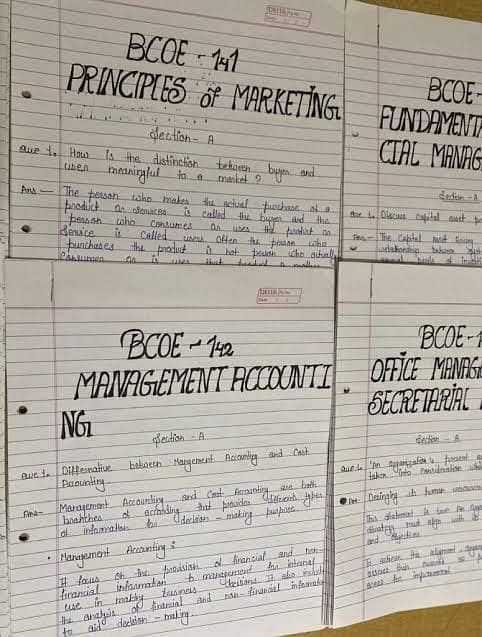 DELTA Pg No.
Date / /
BCOE - 141
PRINCIPLES of MARKETING
Section - A
Que 1. How is the distinction between buyer and
user meaningful to a market?
Ans - The person who makes the actual purchase of a
product or services is called the buyer and the
person who consumes or uses the product or
service is called user. Often the person who
purchases the product is not person who actually
consumes or is user that
BCOE-
FUNDAMENTA
CIAL MANAG
Section - A
Que 1. Discuss capital asset
Ans - The Capital asset
relationship between
DELTA Pg No.
Date / /
BCOE - 142
MANAGEMENT ACCOUNTI
NG
Section - A
Que 1. Differnative between Mangement Accounting and Cost
Accounting.
Ans - Management Accounting and Cost Accounting are both
branches of accounting that provides different types
of information for decision - making purpose.
• Management Accounting :
It focus on the provision of financial and non-
financial information to management for internal
use in making business decisions. It also
the analysis of financial and non-financial
to aid decision - making.
BCOE-1
OFFICE MANAG
SECRETARIAL
Section - A
Que 1. 'An organization's present
taken into consideration
Ans - its human
This statement is
strategy must align with
and objectives.
To achieve the
areas for improvement.